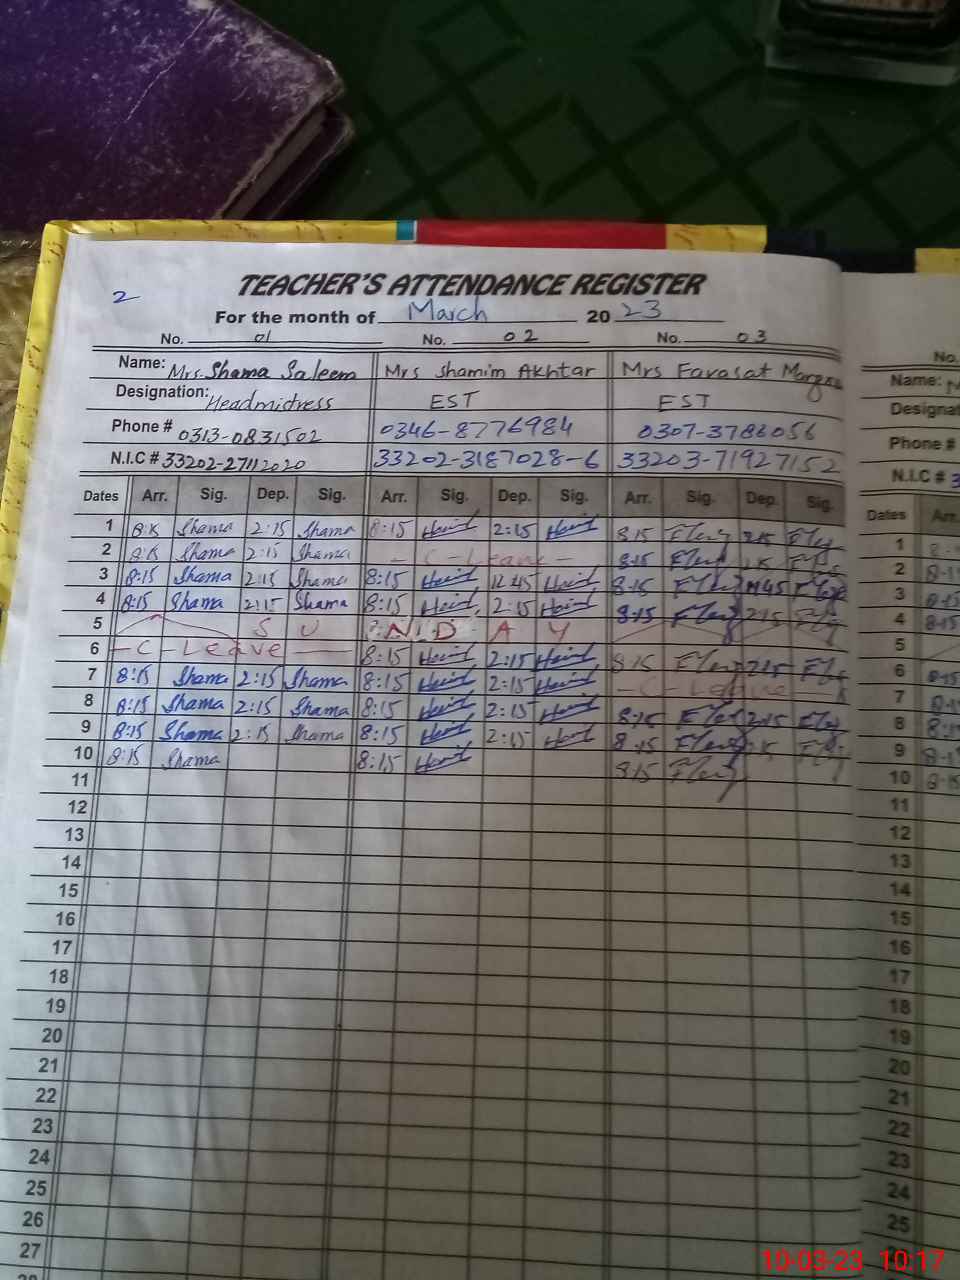 TEACHER'S ATTENDANCE REGISTER
2
For the month of March 2023
No. 01 No. 02 No. 03 No.
Name: Mrs. Shama Saleem Mrs Shamim Akhtar Mrs Farasat Name:
Designation: Headmistress EST EST Designat
Phone # 0313-0831502 0346-8776984 0307-3786056 Phone #
N.I.C # 33202-27112020 33202-3187028-6 33203-71927152 N.I.C # 3
Dates Arr. Sig. Dep. Sig. Arr. Sig. Dep. Sig. Arr. Sig. Dep. Sig. Dates Arr.
1 8:15 Shama 2:15 Shama 8:15 2:15 8:15 2:15 1
2 8:15 Shama 2:15 Shama - C - Leave - 8:15 2:15 2
3 8:15 Shama 2:15 Shama 8:15 12:45 8:15 3 8:15
4 8:15 Shama 2:15 Shama 8:15 2:15 8:15 2:15 4 8:15
5 S U N D A Y 5
6 - C - Leave - 8:15 2:15 8:15 2:15 6 8:15
7 8:15 Shama 2:15 Shama 8:15 2:15 - C - Leave - 7 8:15
8 8:15 Shama 2:15 Shama 8:15 2:15 8:15 2:15 8 8:15
9 8:15 Shama 2:15 Shama 8:15 2:15 8:15 2:15 9
10 8:15 Shama 8:15 8:15 10 8:15
11 11
12 12
13 13
14 14
15 15
16 16
17 17
18 18
19 19
20 20
21 21
22 22
23 23
24 24
25 25
26
27
10-03-23 10:17